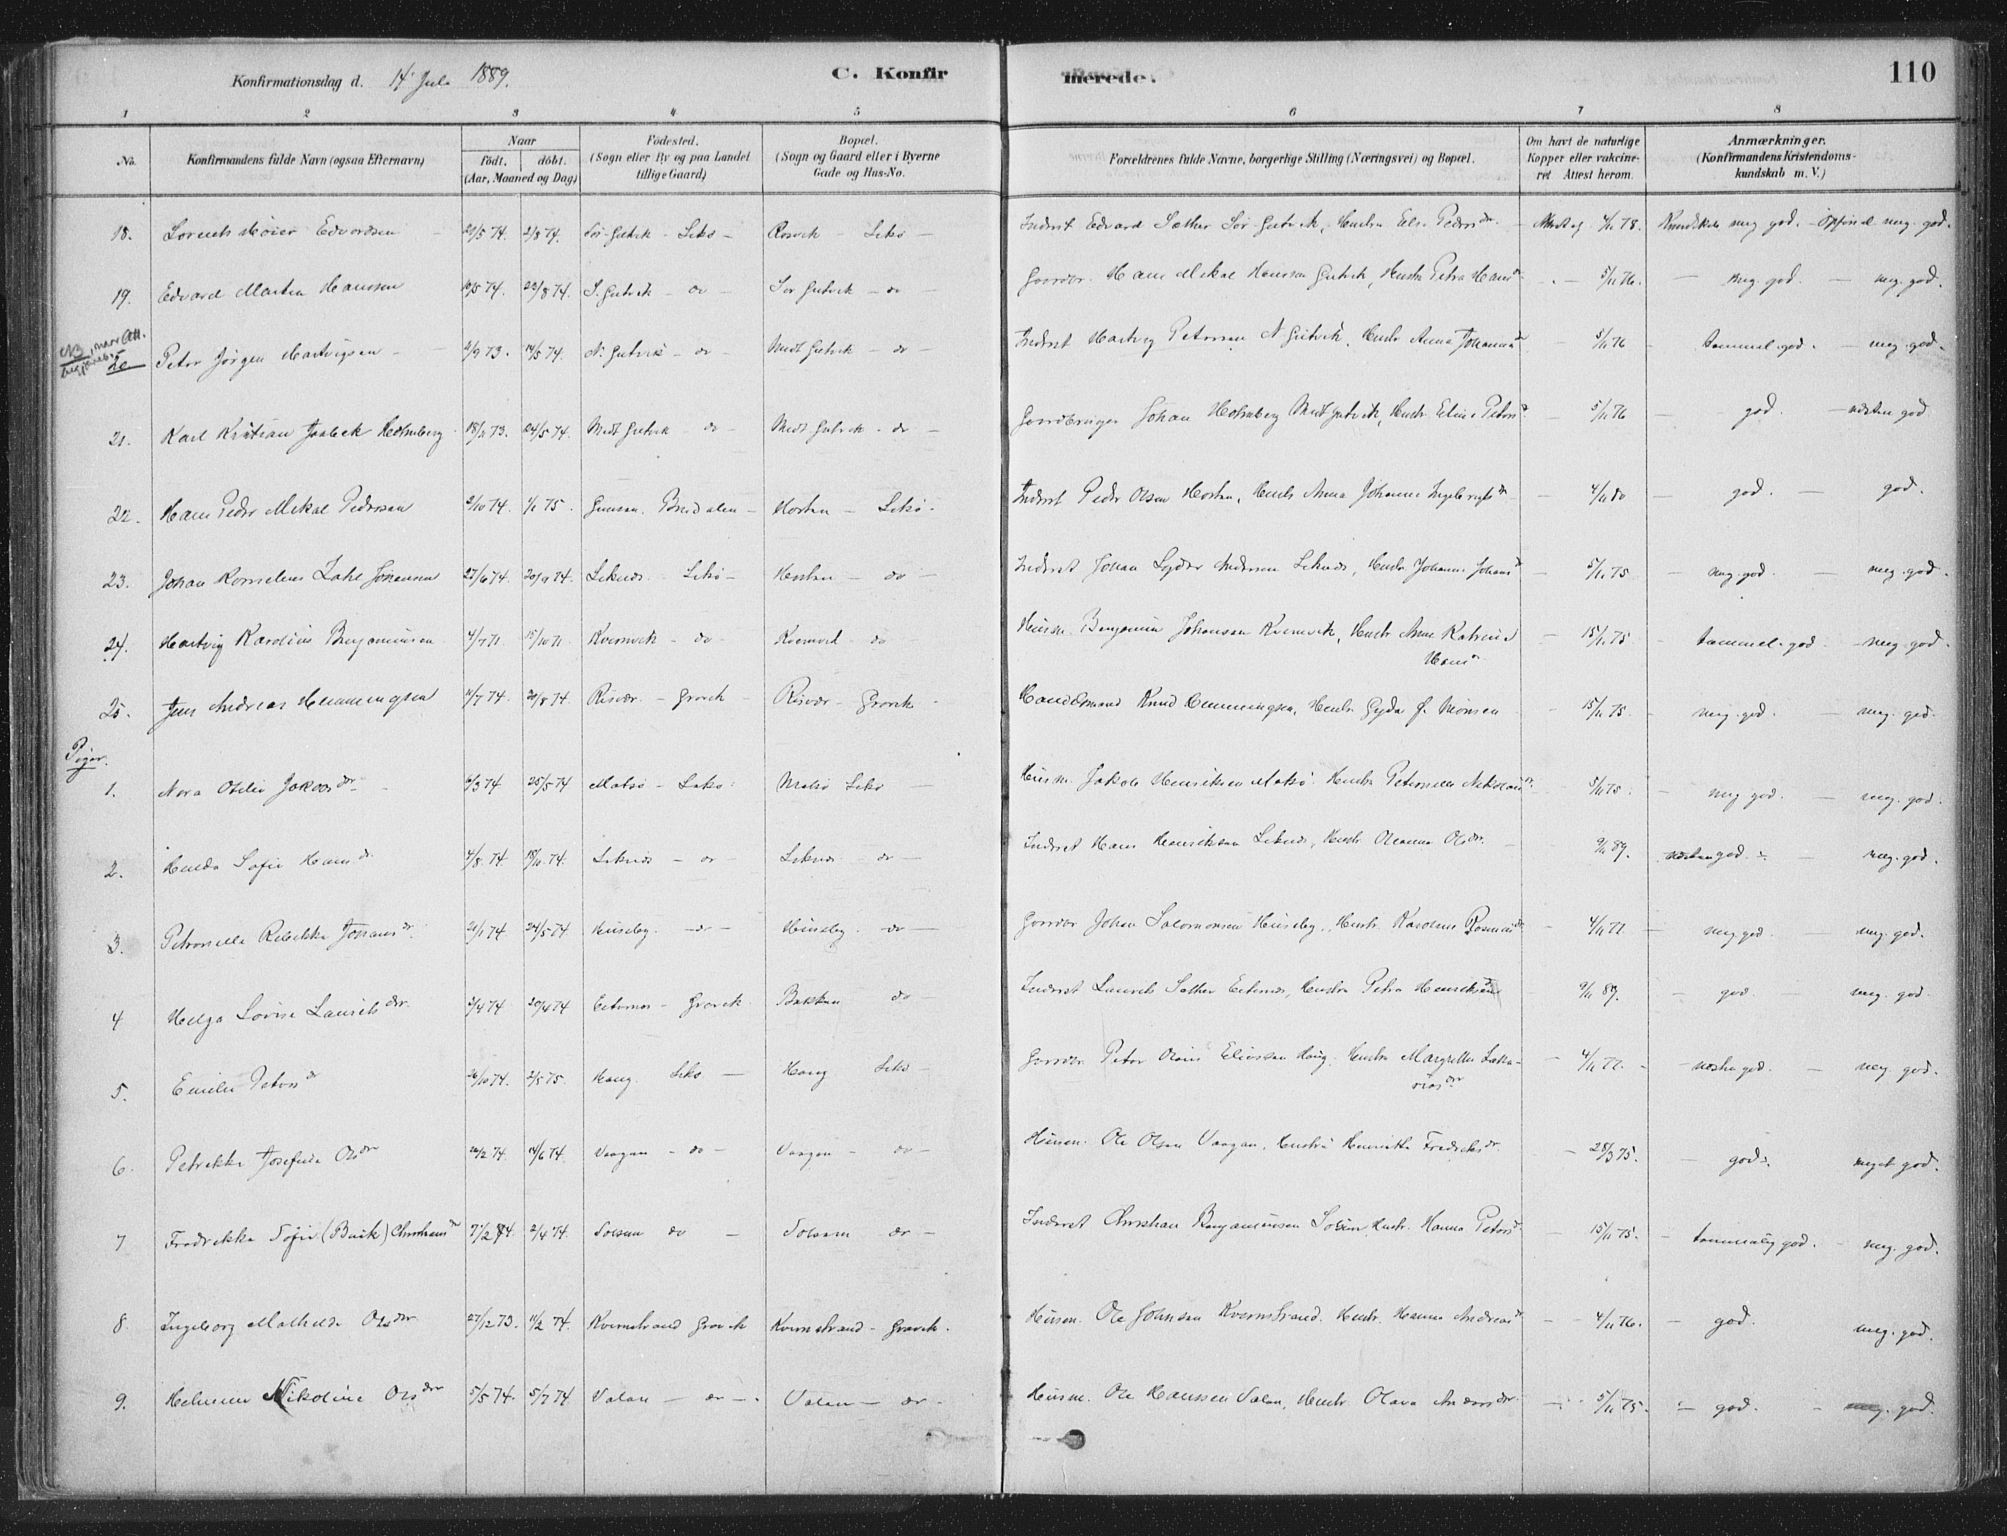 Konfirmationsdag d. 14 Juli 1889. C. Konfir merede. 110
1 2 3 4 5 6 7 8
No. Konfirmandens fulde Navn (ogsaa Efternavn) Naar født. døbt. (Aar, Maaned og Dag) Fødested. (Sogn eller By og paa Landet tillige Gaard) Bopæl. (Sogn og Gaard eller i Byerne Gade og Hus-No. Forældrenes fulde Navne, borgerlige Stilling (Næringsvei) og Bopæl. Om havt de naturlige Kopper eller vakcineret Attest herom. Anmærkninger. (Konfirmandens Kristendomskundskab m. V.)
18. Edvardsen 29/5 74. 2/8 74. Sør Gutvik - Lekø - Rosvik - Lekø - Inderst Edvard Sæther Sør Gutvik, Hustru Else Peders dr - Attest af 4/11 78. Kundskab meg god. - Opførsel meg. god.
19. Edvard Martin Hanssen 19/5 74. 22/8 74. S. Gutvik - do - Sør Gutvik - do - Gaardbr. Hans Mikal Hanssen Gutvik, Hustr Petra Hans dr - 5/11 76. - meg. god. - meg. god.
20 Peter Jørgen Hartvigsen - 2/9 73. 14/5 74. N. Gutvik - do - Midt Gutvik - do Inderst Hartvig Peterssen N. Gutvik, Hustr Anna Johanna dr - 5/11 76 - tammel. god. - meg. god.
21. Karl Kristian Holmberg 18/11 73. 24/5 74. Midt Gutvik - do - Midt Gutvik - do - Gaardbruger Johan Holmberg Midt Gutvik, Hustr Eline Peters dr - 5/11 76 - god. - næsten god.
22. Hans Peder Mikal Pederssen 2/10 74. 1/1 75. Horten - Lekø. Inderst Peder Olsen Horten, Hustr Anna Johanna dr - 4/11 80 - god. - god.
23. Johan Kornelius Johansen 27/6 74. 20/9 74. Leknes. Lekø - Horten - do - Inderst Johan Anderssen Leknes, Hustr Johanna Johans dr - 5/11 75 - meg. god. - meg. god.
24. Hartvig Karolius Benjaminsen 4/7 71. 15/10 71 Kvernvik - do Kvernvik - do Husm. Benjamin Johanssen Kvernvik, Hustr Anne Katrine Hans dr - 15/11 75 - tammel. god - meg. god.
25. Jens Andreas Henningsen 11/7 74. 20/8 74. Risvær - Gravik - Risvær - Gravik - Handelsmand Knud Henningsen, Hustr Gyda f. Monsen - 15/11 75. - meg. god. - meg. god.
Piger.
1. Nora Otilie Jakobs dr - 6/3 74 25/5 74 Madsø - Lekø. Madsø Lekø - Husm. Jakob Henriksen Madsø. Hustr. Petornelle Nikolai dr - 5/11 75. - meg god. - meg. god.
2. Hulda Sofie Hans dr. 4/8 74 18/10 74. Leknes - do - Leknes. do - Inderst Hans Henrikssen Leknes, Hustr Oleanna Ols dr. - 9/11 89. god. - meg. god.
3. Petronella Rebekka Johans dr. 21/1 74 24/5 74 Huseby. - do - Huseby. - do - Gaardbr. Johan Salomonsen Huseby. Hustr. Karoline dr. - 4/11 77 - meg god - meg. god.
4 Helga Lovise Laurits dr. 3/4 74 20/4 74 Eiternes - Gravik. Bakken do Inderst Laurits Sæther Eiternes, Hustru Petra Henriks dr 9/11 89. - god - meg. god.
5. Emilie Peters dr 26/10 74. 2/5 75. Haug. Lekø - Haug Lekø - Gaardbr. Peter Olaus Eliassen Haug. Hustru Margrethe Zakarias dr. - 4/11 77. - næsten god. - meg. god.
6. Petrikke Josefine Ols dr 20/2 74. 14/6 74. Vaagan - do - Vaagan - do - Husm. Ole Olsen Vaagan, Hustru Henrikka Fredriks dr. - 28/3 75. - god. meget god.
7 Fredrikke Sofie (Buck) Christians dr 7/2 74. 2/4 74. Solsem do - Solsem do - Inderst Christian Benjaminsen Solsem, Hustr. Hanna Peters dr - 15/11 75. - tammelig god. - meg. god.
8. Ingeborg Mathilde Ols dr. 27/12 73. 11/2 74. Kvernstrand Gravik Kvernstrand - Gravik. Husm. Ole Johnsen Kvernstrand. Hustr. Hanna Andreas dr - 4/11 76. - god. meg. god.
9. Nikoline Ols dr 5/5 74. 5/7 74 Valan - do - . Valan - do - Husm. Ole Hanssen Valan, Hustr Olava Anders dr. - 5/11 75. - god. - meg. god.